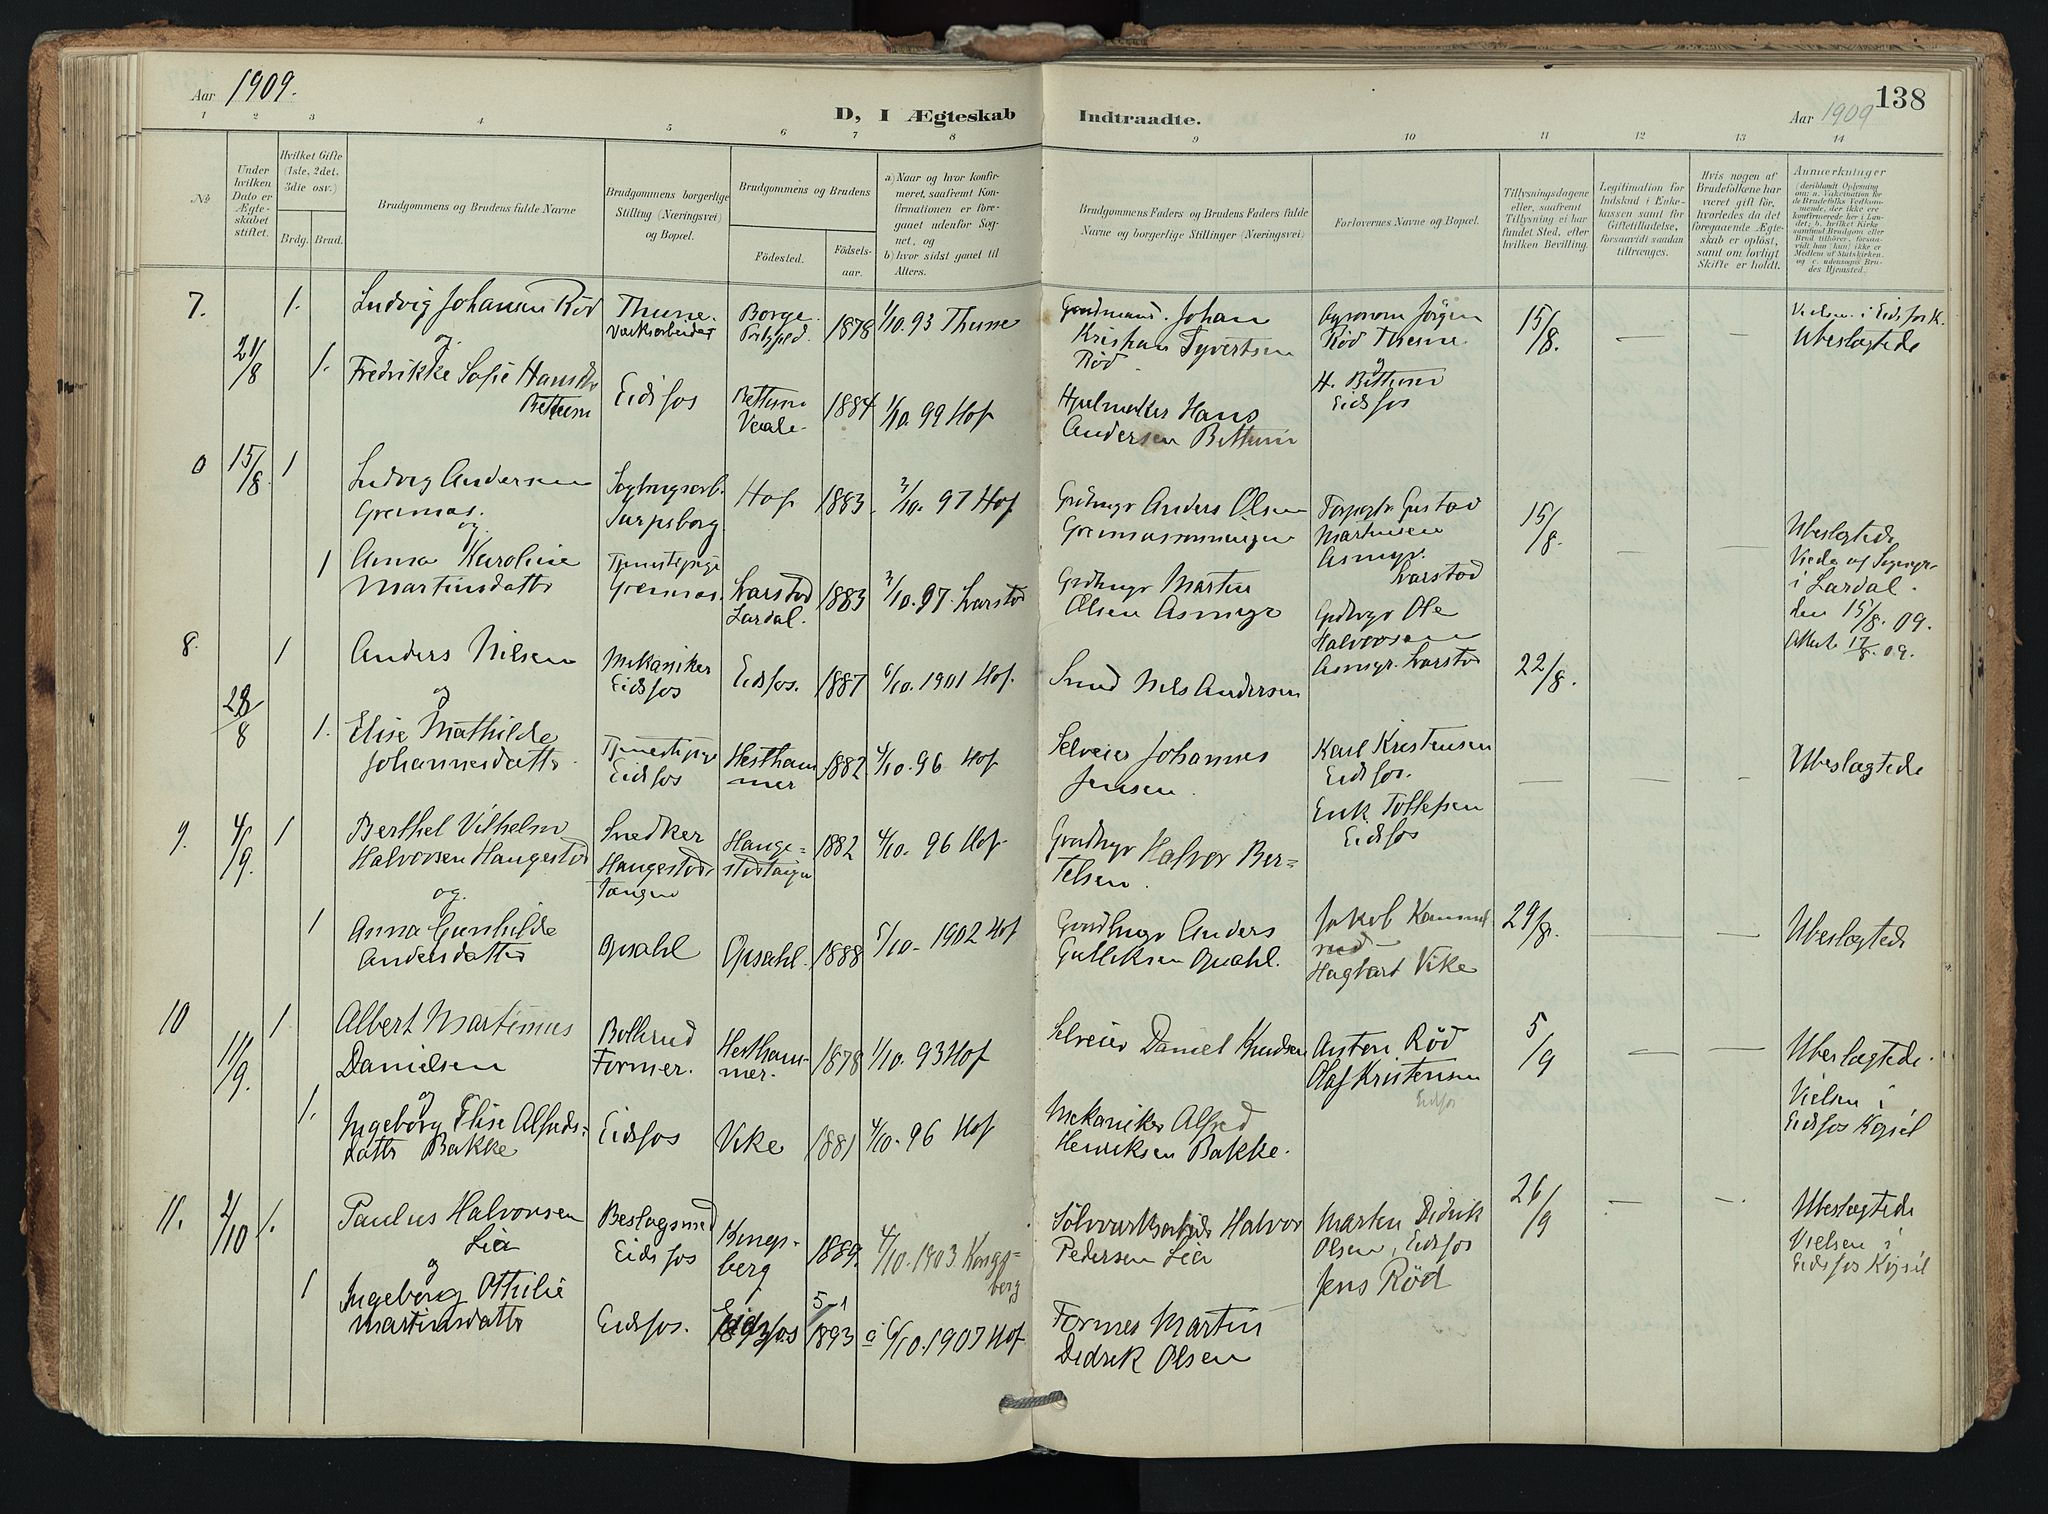 Aar 1909.
D, I Ægteskab
Indtraadte.
Aar 1909
138
1 2 3 4 5 6 7 8 9 10 11 12 13 14
No
Under hvilken Dato er Ægteskabet stiftet.
Hvilket Gifte (1ste, 2det, 3die osv.)
Brdg. Brud.
Brudgommens og Brudens fulde Navne
Brudgommens borgerlige Stilling (Næringsvei) og Bopæl.
Brudgommens og Brudens
Fødested.
Fødselsaar.
a) Naar og hvor konfirmeret, saafremt Konfirmationen er foregaaet udenfor Sognet, og
b) hvor sidst gaaet til Alters.
Brudgommens Faders og Brudens Faders fulde Navne og borgerlige Stillinger (Næringsvei)
Forlovernes Navne og Bopæl.
Tillysningsdagene eller, saafremt Tillysning ei har fundet Sted, efter hvilken Bevilling.
Legitimation for Indskud i Enkekassen samt for Giftetilladelse, forsaavidt saadan tiltrænges.
Hvis nogen af Brudefolkene har været gift før, hvorledes da det foregaaende Ægteskab er opløst, samt om lovligt Skifte er holdt.
Anmærkninger
7.
21/8
1.
Ludvig Johansen Rød
og
1.
Fredrikke Sofie Hansdtr
Bettum
Thune
Verksarbeider
Eidsfos
Borge
1878
Bettum
Vaale
1884
1/10. 93 Thune
1/10. 99 Hof
Gaardmand Johan
Kristian Syvertsen
Rød
Hjulmaker Hans
Andersen Bettum
Agronom Jørgen
Rød Thune
og
H. Bettum
Eidsfos
15/8.
Vielsen i Eidsfos K.
Ubeslægtede
0
15/8
1
Ludvig Andersen
Grennes.
og
1
Anna Karoline
Martinsdatter
Sarpsborg
Tjenestepige
Hof
1883
Svarstad
Lardal.
1883
3/10. 97 Hof
3/10. 97. Svarstad
Gaardbruger Anders Olsen
Gaardbruger Martin
Olsen Asmyr
Gustav
Martinsen
Asmyr.
Svarstad
Gaardbruger Ole
Halvorsen
Asmyr. Svarstad
15/8.
Ubeslægtede
i Lardal.
den 15/8. 09.
Attest 17/8. 09.
8.
28/8
1
Anders Nilsen
og
1.
Elise Mathilde
Johannesdatter
Mekaniker
Eidsfos
Tjenestepige
Eidsfos
Eidsfos.
1887
Hesthammer
1882
6/10. 1901 Hof.
4/10. 96 Hof
Smed Nils Andersen
Selveier Johannes
Jensen.
Karl Kristensen
Eidsfos.
Erik Tollefsen
Eidsfos
22/8.
Ubeslægtede
9.
4/9.
1
Berthel Vilhelm
Halvorsen Haugestad
og
1
Anna Gunhilde
Andersdatter
Snedker
Haugestad
tangen
Opsahl
Haugestadtangen
1882
Opsahl.
1888
4/10. 96 Hof
5/10. 1902 Hof
Gaardbruger Halvor Bertelsen.
Gaardbruger Anders
Gulliksen Opsahl.
Jakob
Hagbart Vike
29/8.
Ubeslægtede
10
11/9.
1
Albert Martinius
Danielsen
og
1.
Ingeborg Elise Alfredsdatter Bakke
Bollerud
Former.
Eidsfos
Hesthammer.
1878
Vike
1881
1/10. 93 Hof
4/10. 96 Hof
Selveier Daniel Knudsen
Mekaniker Alfred
Henriksen Bakke.
Anton Rød
Olaf Kristensen
Eidsfos
5/9
Ubeslægtede.
Vielsen i
Eidsfos Kapel
11.
2/10
1.
Paulus Halvorsen
Lia
og
1
Ingeborg Othilie
Martinsdatter
Beslagsmed
Eidsfos
Eidsfos.
Kongsberg
1889.
Eidsfos
5-1
1893
4/10. 1903 Kongsberg
6/10. 1907 Hof
Sølvverksarbeider Halvor
Pedersen Lia
Former Martin
Didrik Olsen
Martin Didrik
Olsen, Eidsfos
Jens Rød
26/9
Ubeslægtede
Vielsen i
Eidsfos Kapel